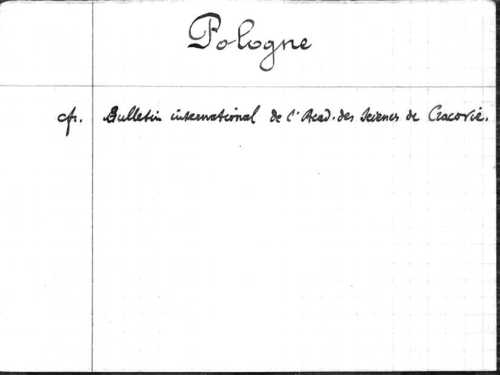 Pologne
cfr. Bulletin international de l'Acad. des Sciences de Cracovie.